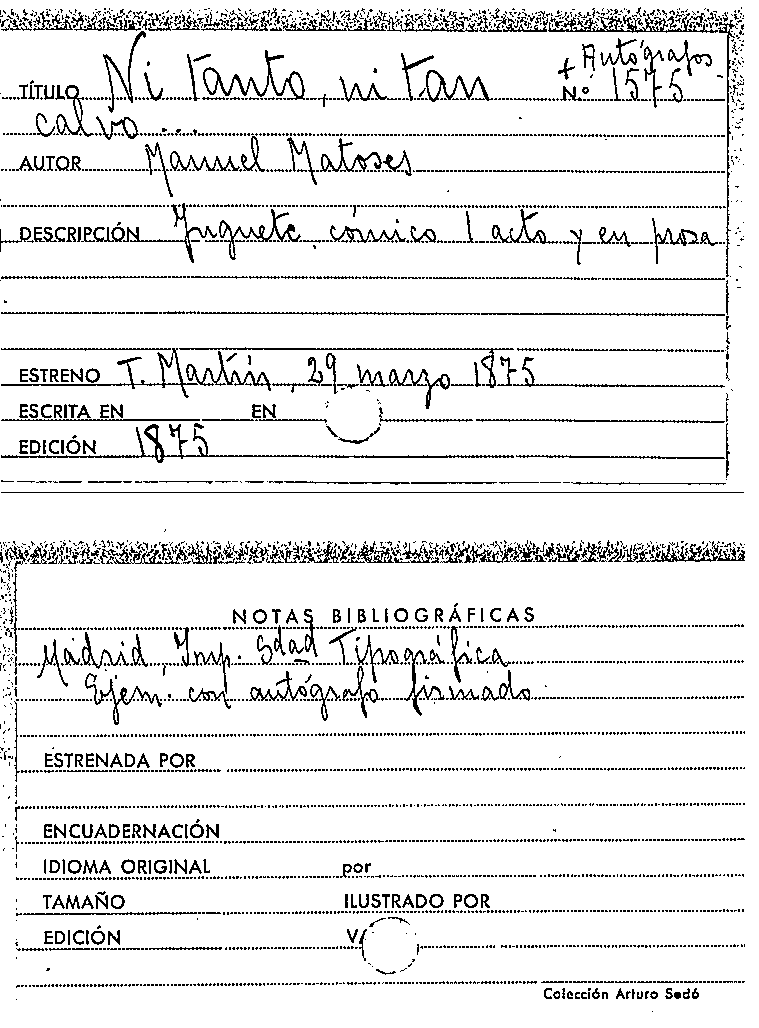 + Autógrafos
TÍTULO Ni tanto, ni tan Nº 1575
calvo ...
AUTOR Manuel Matoses
DESCRIPCIÓN Juguete cómico 1 acto y en prosa
ESTRENO T. Martín, 29 marzo 1875
ESCRITA EN EN
EDICIÓN 1875
NOTAS BIBLIOGRÁFICAS
Madrid, Imp. Sdad Tipográfica
Ejem. con autógrafo firmado
ESTRENADA POR
ENCUADERNACIÓN
IDIOMA ORIGINAL por
TAMAÑO ILUSTRADO POR
EDICIÓN
Colección Arturo Sedó